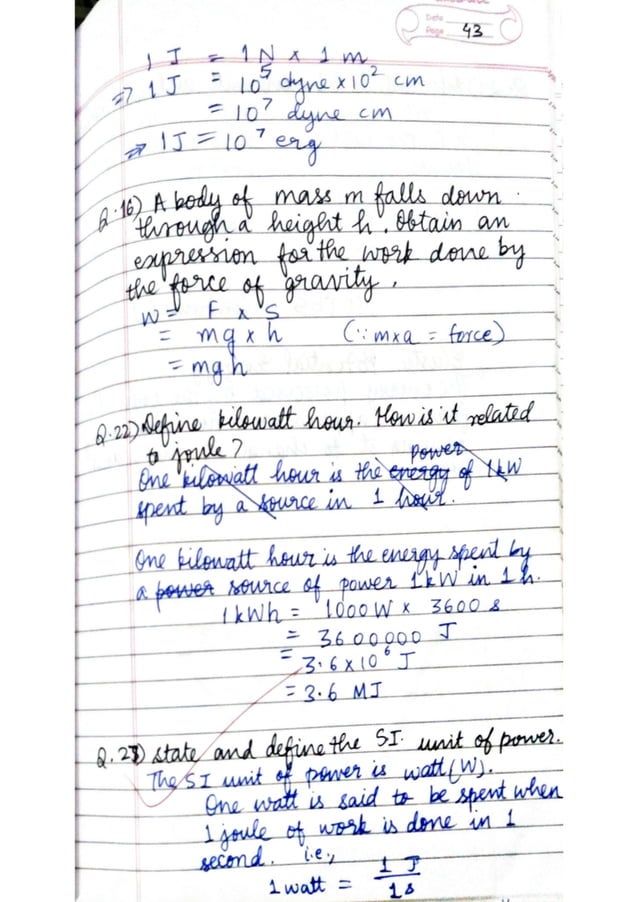 Date
Page 43
1 J = 1N x 1 m
=> 1 J = 10⁵ dyne x 10² cm
= 10⁷ dyne cm
=> 1J = 10⁷ erg
Q.16) A body of mass m falls down
through a height h. Obtain an
expression for the work done by
the force of gravity.
W = F x S
= mg x h (∵ mxa = force)
= mgh
Q.22) Define kilowatt hour. How is it related
to joule?
power
One kilowatt hour is the energy of 1kW
spent by a source in 1 hour.
One kilowatt hour is the energy spent by
a power source of power 1kW in 1 h.
1kWh = 1000W x 3600 s
= 3600000 J
= 3.6 x 10⁶ J
= 3.6 MJ
Q.23) State and define the SI unit of power.
The SI unit of power is watt (W).
One watt is said to be spent when
1 joule of work is done in 1
second. i.e.,
1 watt = 1 J / 1s